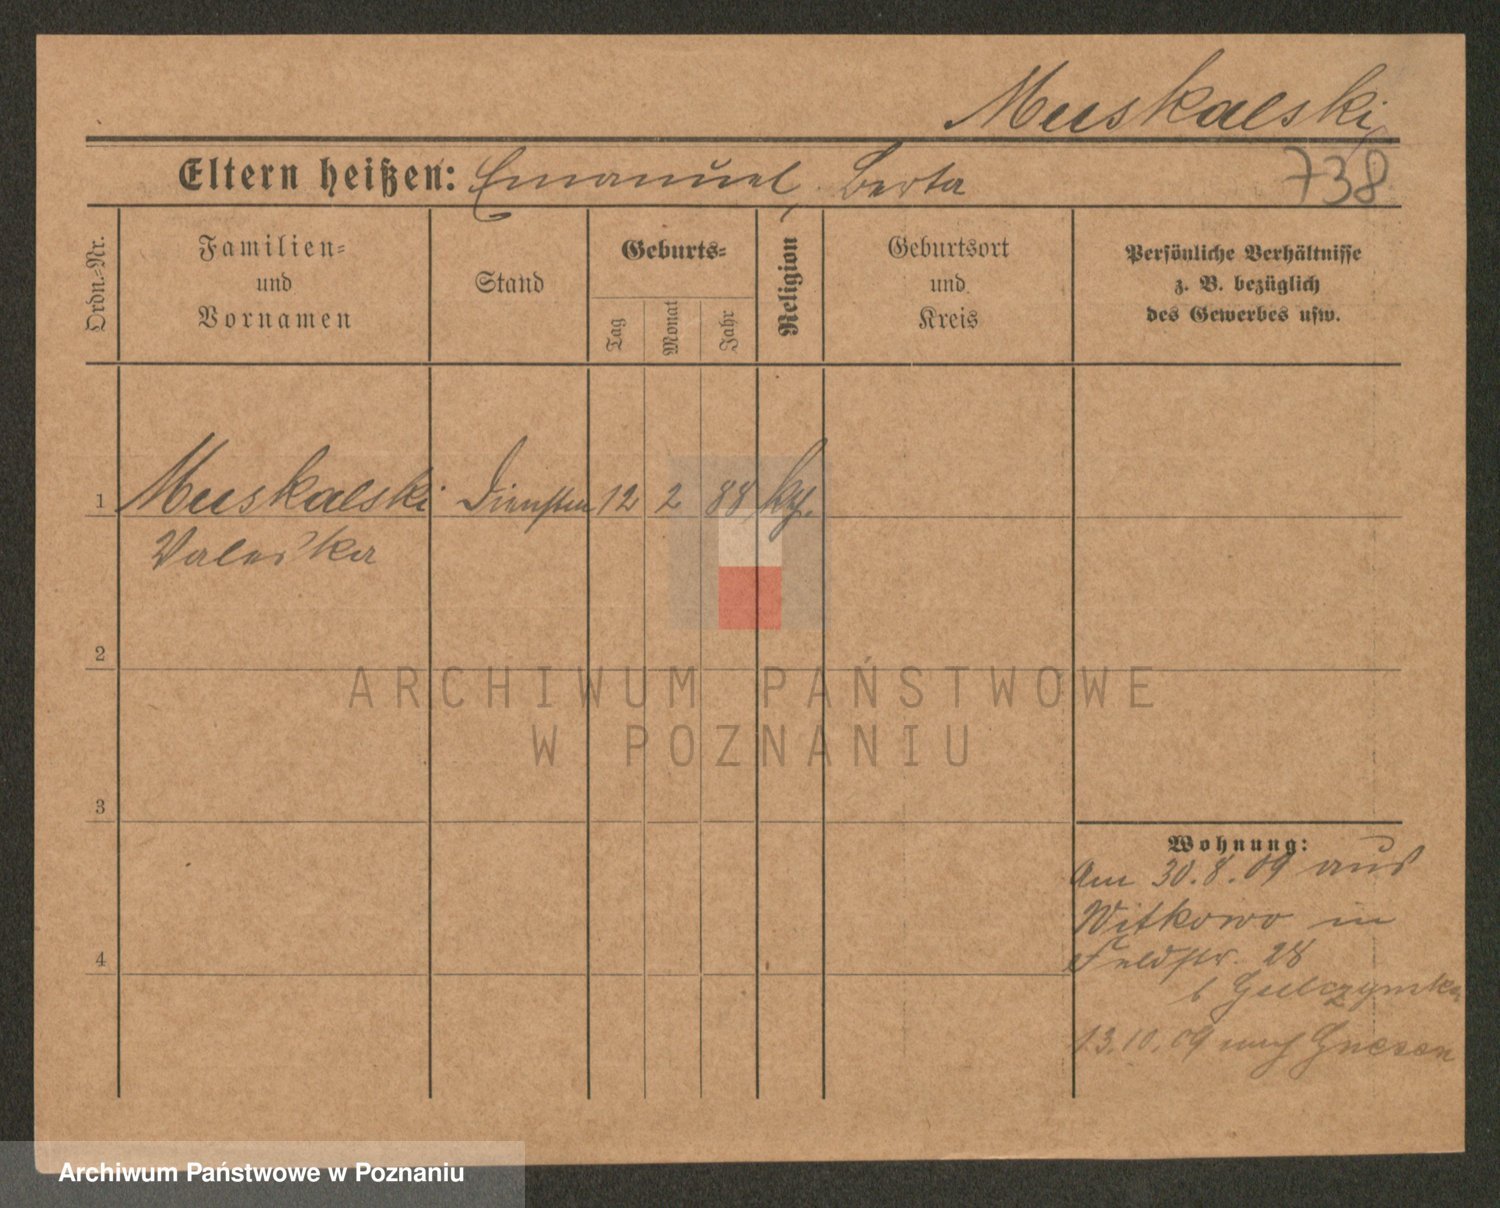 Muskalski
Eltern heißen: Emanuel, Berta 738
Ordn.-Nr.
Familien-
und
Vornamen
Stand
Geburts-
Tag
Monat
Jahr
Religion
Geburtsort
und
Kreis
Persönliche Verhältnisse
z. B. bezüglich
des Gewerbes usw.
1 Muskalski 12 2 88
Valeska
2
ARCHIWUM PAŃSTWOWE
W POZNANIU
3
Wohnung:
Am 30.8.09 aus
Witkowo in
Feldstr. 28
b
4
13.10.09 nach Gnesen
Archiwum Państwowe w Poznaniu